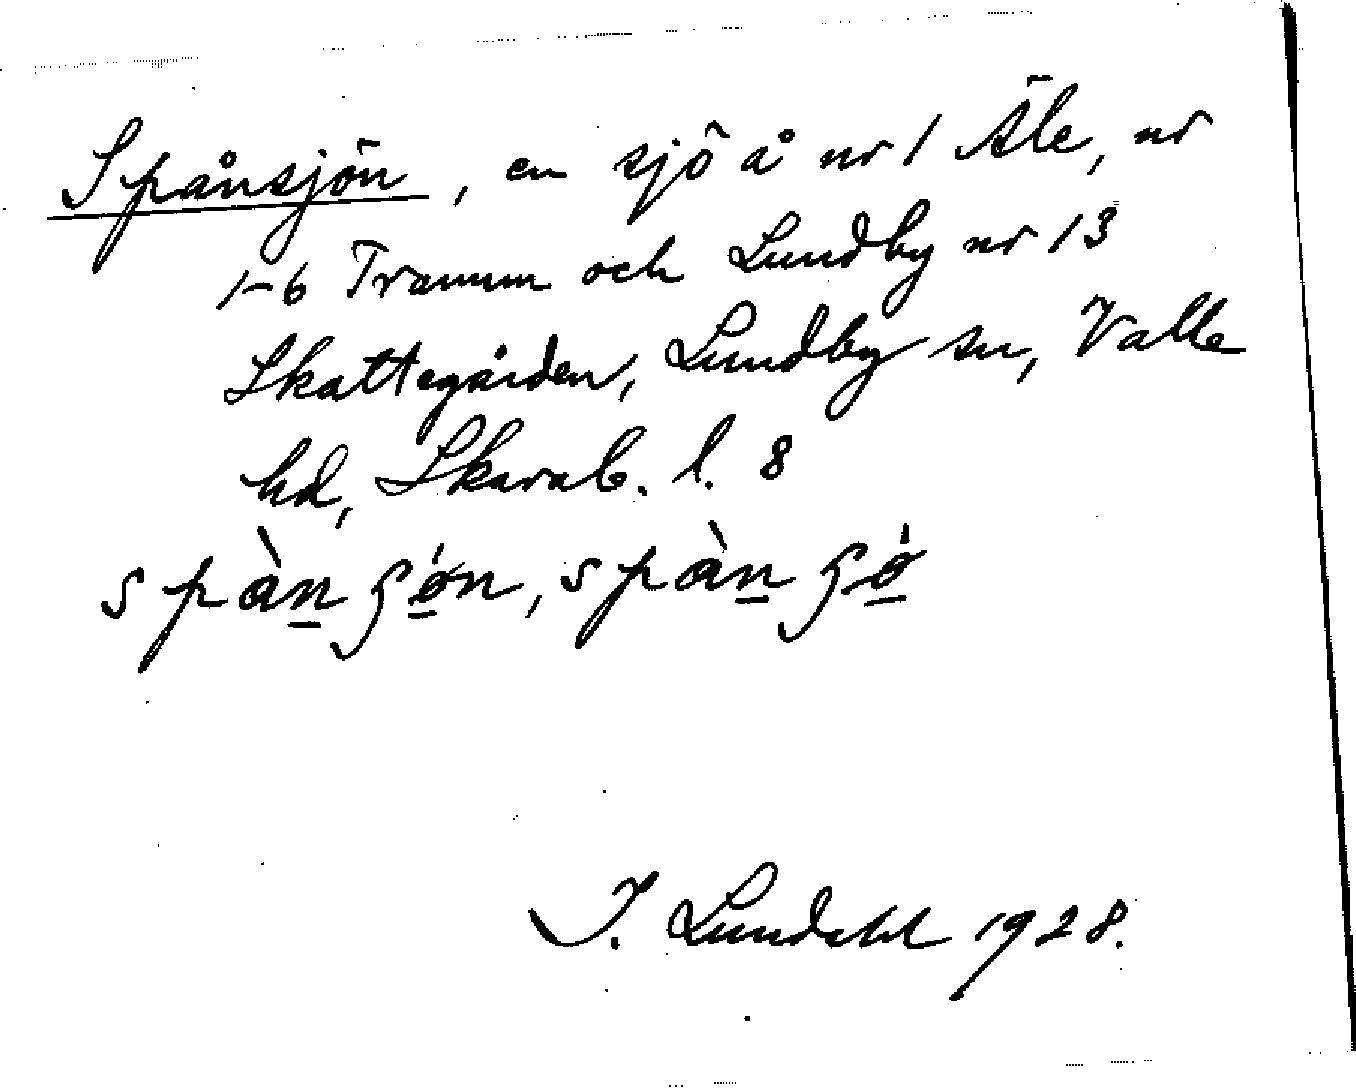 Spånsjön, en sjö å nr 1 Äle, nr
1-6 Tranum och Lundby nr 13
Skattegården, Lundby sn, Valle
hd, Skarab. l. 8
spàn̲ ʂǿ̲n, spàn̲ ʂǿ̲
I. Lundahl 1928.